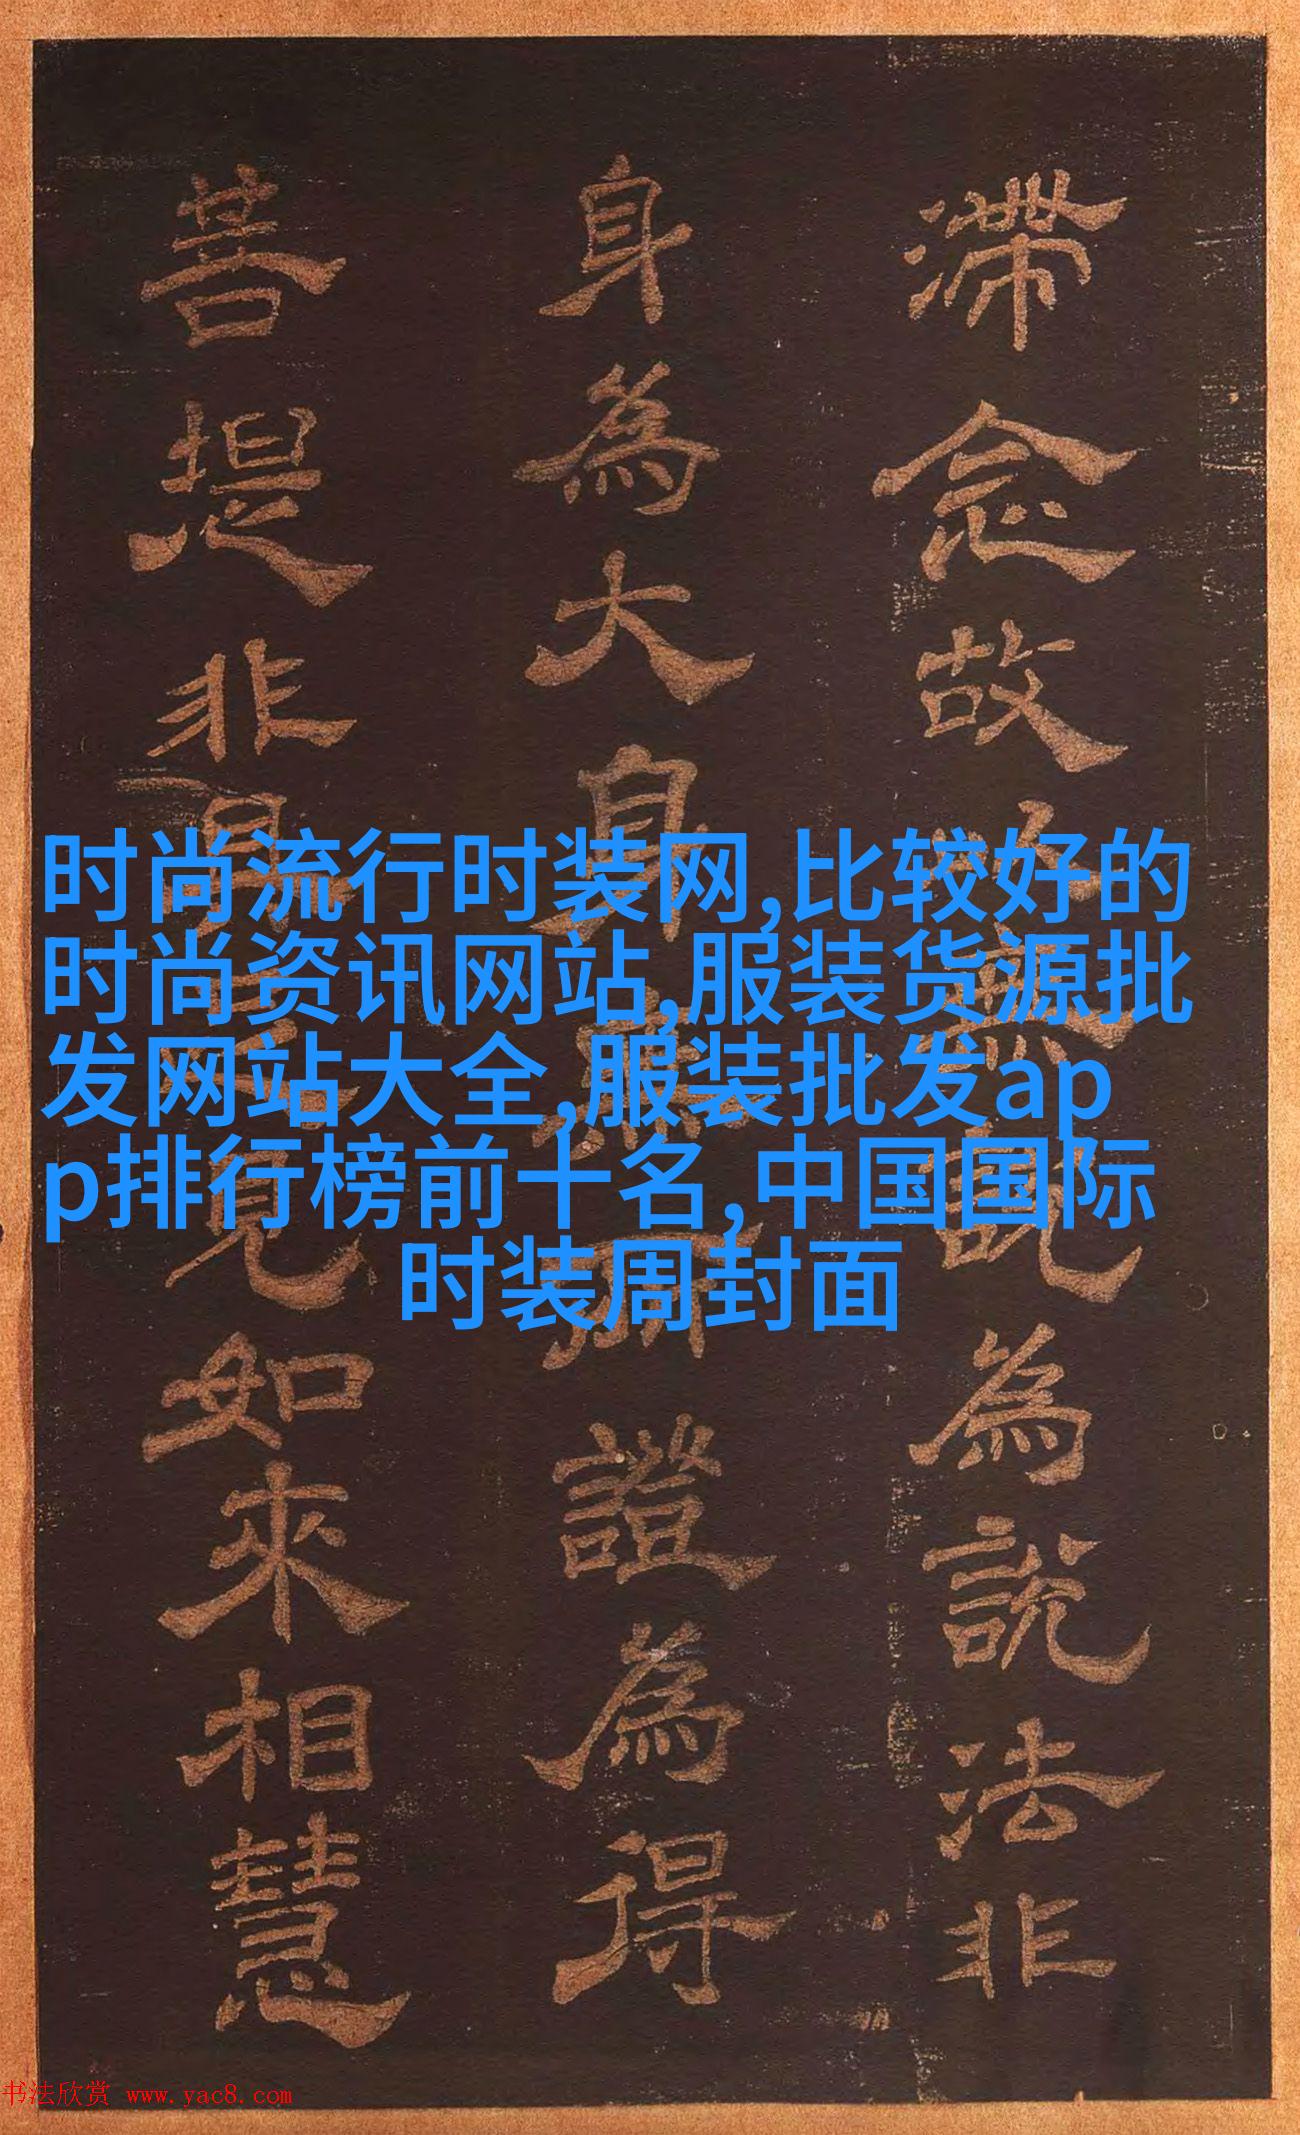 滯念故
為說法非
身為大身
證為得
菩提非
見如來相慧
时尚流行时装网,比较好的
时尚资讯网站,服装货源批
发网站大全,服装批发ap
p排行榜前十名,中国国际
时装周封面
书法欣赏 www.yac8.com